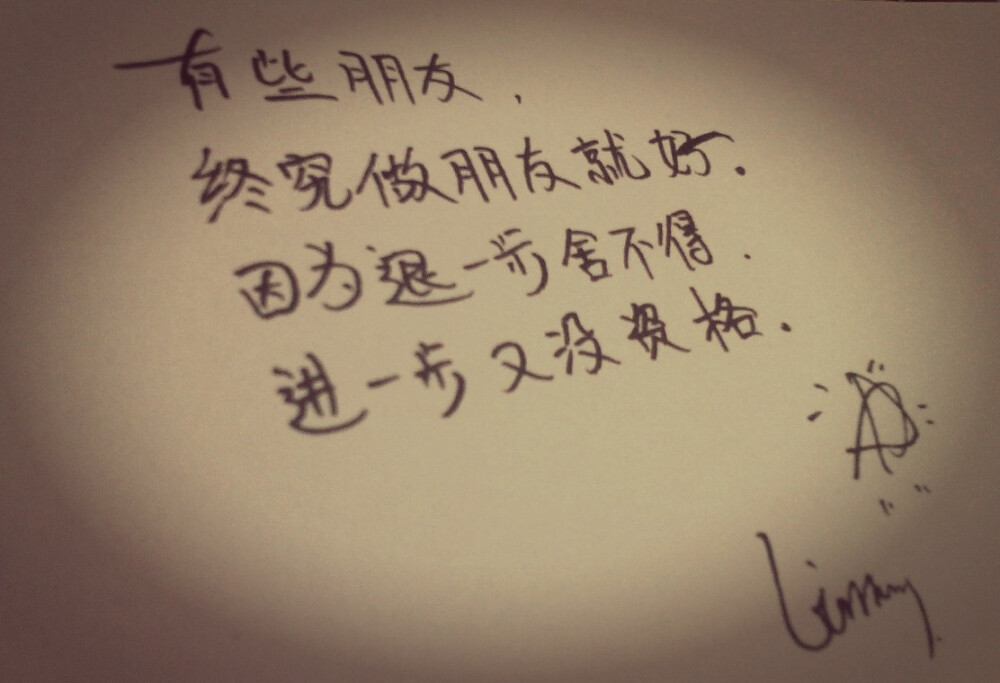 有些朋友，
终究做朋友就好.
因为退一步舍不得.
进一步又没资格.